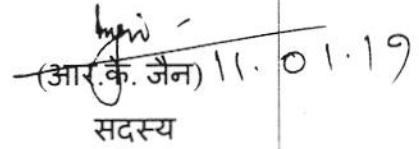 (आर.के. जैन) 11.01.19
सदस्य